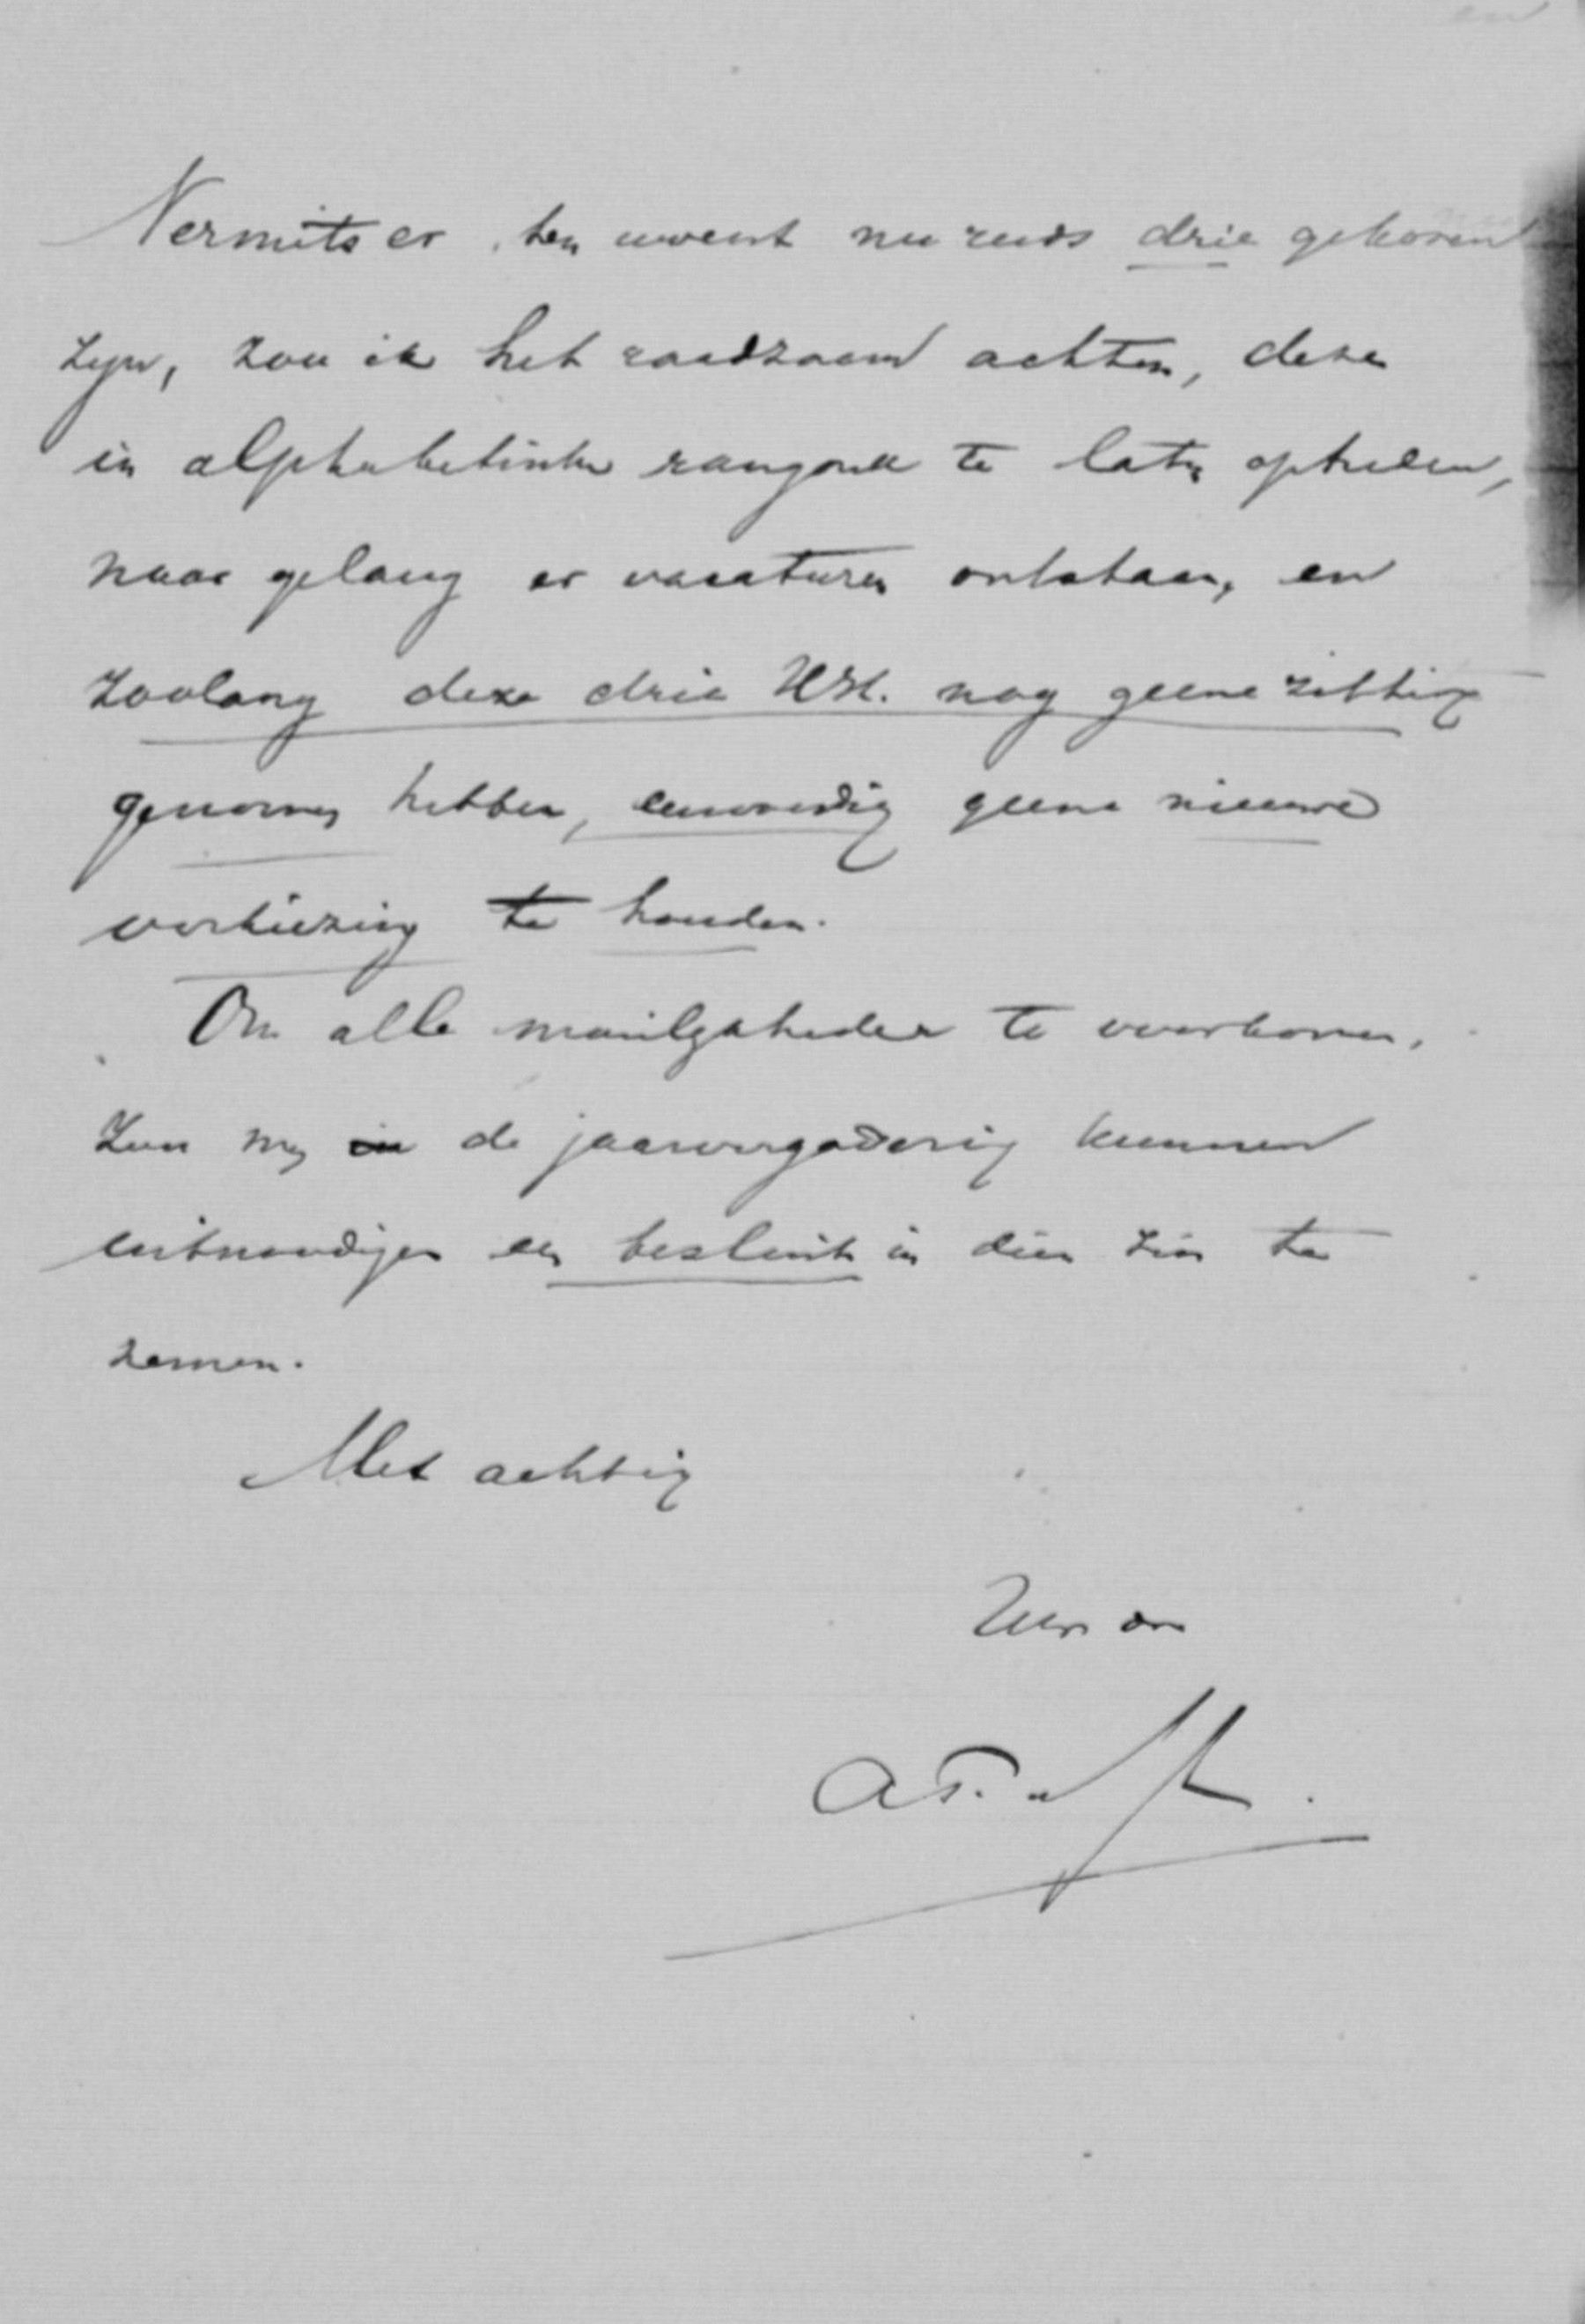 Vermits er ten uwent nu reeds drie gekozen
zyn, zou ik het raadzaam achten, deze
in alphabetische rangorde te laten optreden,
naar gelang er vacaturen ontstaan, en
zoolang deze drie HH. nog geene zitting
genomen hebben, eenvoudig geene nieuwe
verkiezing te houden.
Om alle moeilykheden te voorkomen,
zou my de jaarvergadering kunnen
uitnoodigen een besluit in dien zin te
nemen.
Met achting
Uw dr